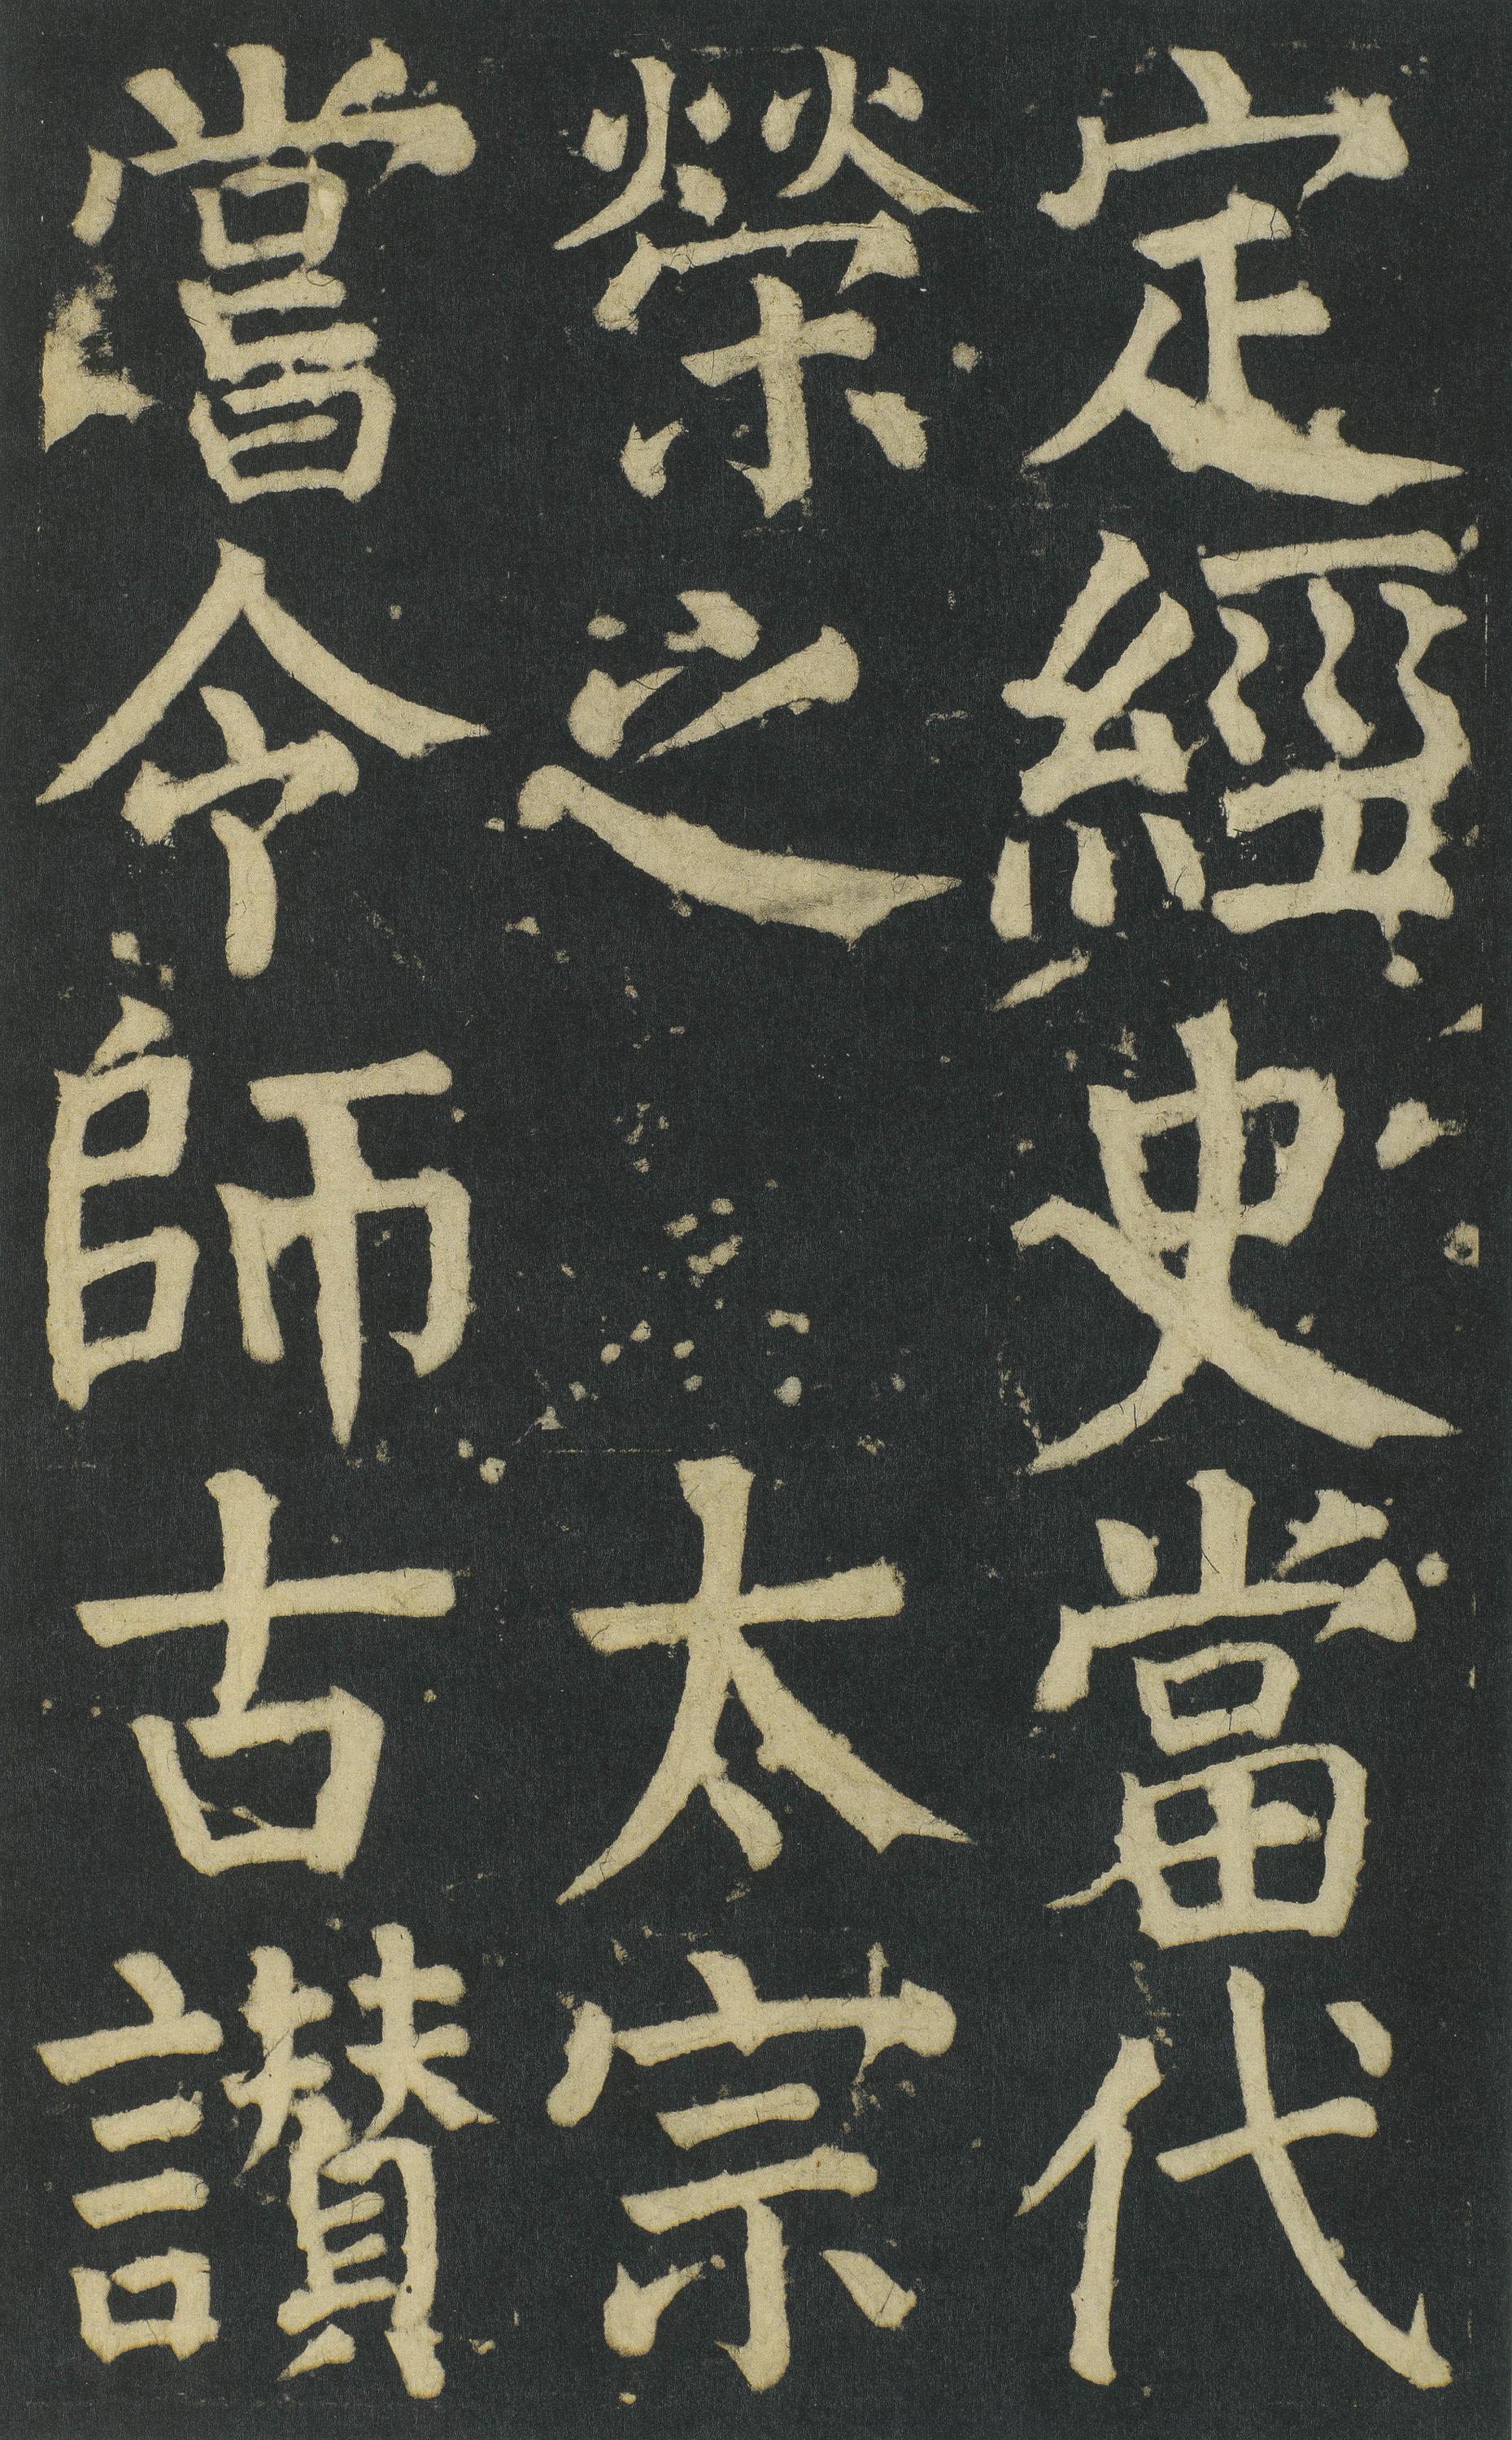 定經史當代
榮之太宗
嘗令師古讃